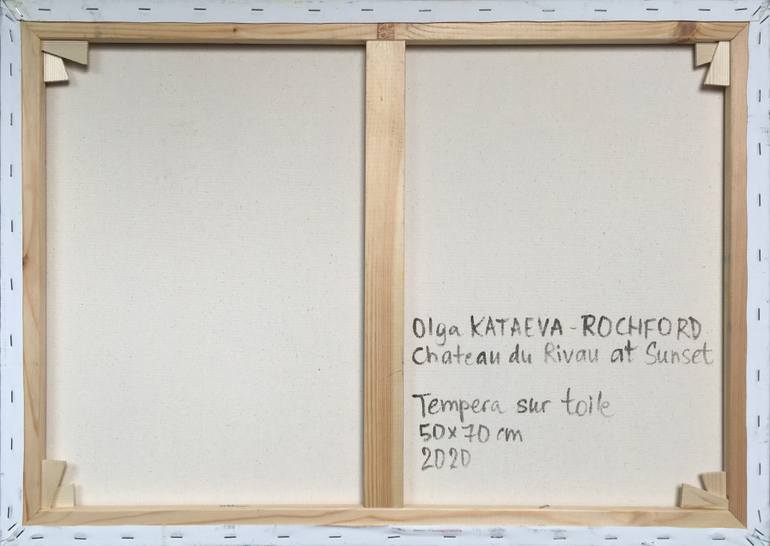 Olga KATAEVA-ROCHFORD
Chateau du Rivau at Sunset
Tempera sur toile
50x70 cm
2020